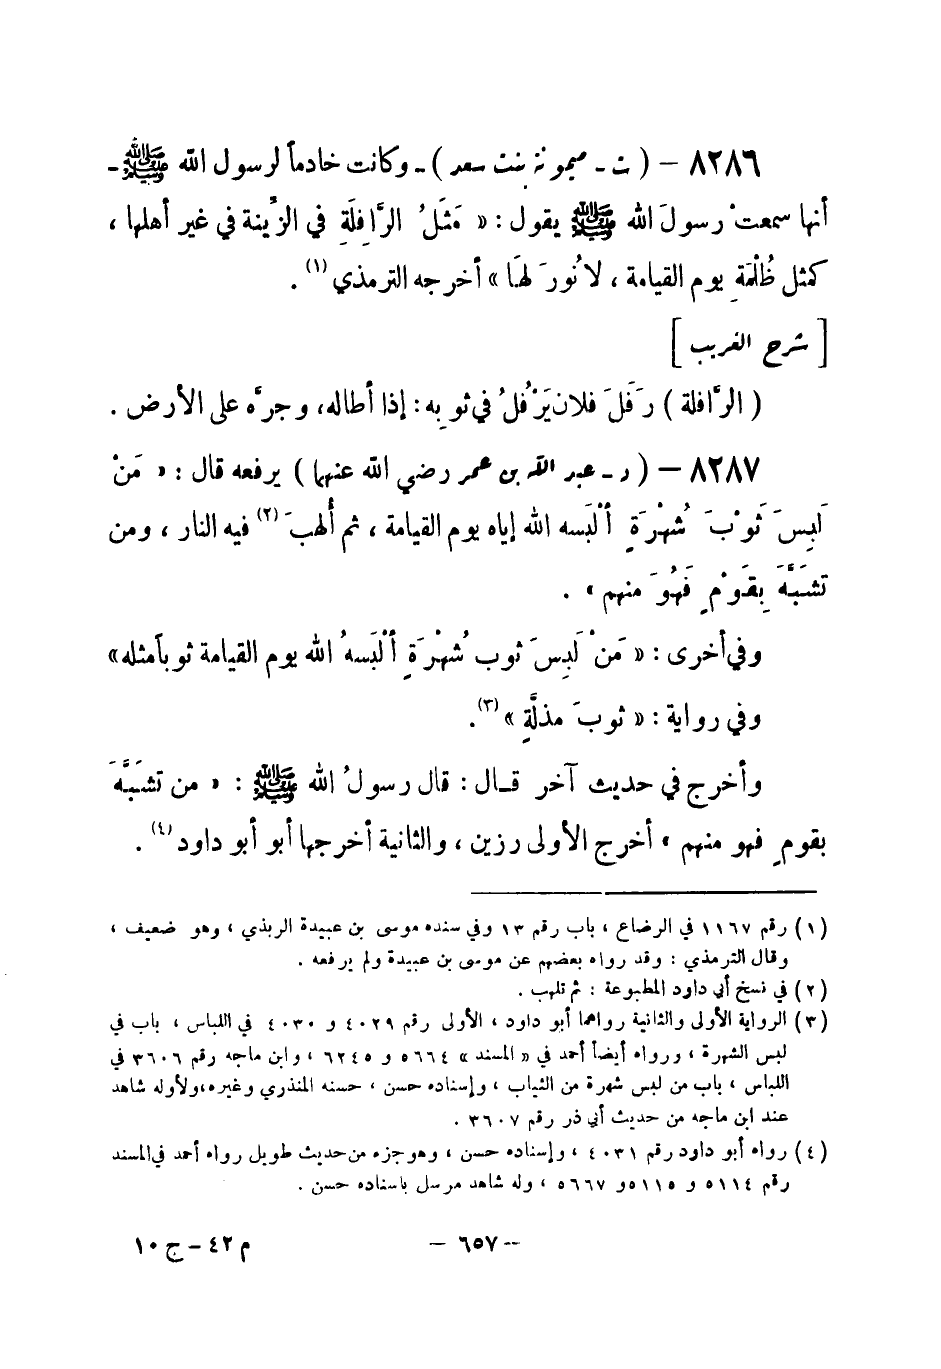 ٨٢٨٦ – ( ت ـ ميمونة بنت سعد ) ـ وكانت خادماً لرسول الله ﷺ ـ
أنها سمعتْ رسولَ الله ﷺ يقول : « مَثَلُ الرَّافِلَةِ في الزِّينة في غير أهلها ،
كمثل ظُلْمَةِ يوم القيامة ، لا نُورَ لهَا » أخرجه الترمذي (١) .
[ شرح الغريب ]
( الرَّافلة ) رَفَلَ فلان يَرْفُلُ في ثوبِه : إذا أطاله، وجرَّه على الأرض .
٨٢٨٧ – ( د ـ عبد الله بن عمر رضي الله عنهما ) يرفعه قال : « مَنْ
لَبِسَ ثَوْبَ شُهْرَةٍ ألْبَسه الله إياه يوم القيامة ، ثم أُلهبَ (٢) فيه النار ، ومن
تَشَبَّهَ بِقَوْمٍ فَهُوَ منهم » .
وفي أخرى : « مَنْ لَبِسَ ثوب شُهْرَةٍ ألْبَسهُ الله يوم القيامة ثوباً مثله»
وفي رواية : « ثوبَ مذلَّةٍ » (٣) .
وأخرج في حديث آخر قـال : قال رسولُ الله ﷺ : « من تشَبَّهَ
بقومٍ فهو منهم » أخرج الأولى رزين ، والثانية أخرجها أبو أبو داود (٤) .
(١) رقم ١١٦٧ في الرضاع ، باب رقم ١٣ وفي سنده موسى بن عبيدة الربذي ، وهو ضعيف ،
وقال الترمذي : وقد رواه بعضهم عن موسى بن عبيدة ولم يرفعه .
(٢) في نسخ أبي داود المطبوعة : ثم تلهب .
(٣) الرواية الأولى والثانية رواهما أبو داود ، الأولى رقم ٤٠٢٩ و ٤٠٣٠ في اللباس ، باب في
لبس الشهرة ، ورواه أيضاً أحمد في « المسند » ٥٦٦٤ و ٦٢٤٥ ، وابن ماجه رقم ٣٦٠٦ في
اللباس ، باب من لبس شهرة من الثياب ، وإسناده حسن ، حسنه المنذري وغيره،ولأوله شاهد
عند ابن ماجه من حديث أبي ذر رقم ٣٦٠٧ .
(٤) رواه أبو داود رقم ٤٠٣١ ، وإسناده حسن ، وهو جزء من حديث طويل رواه أحمد في المسند
رقم ٥١١٤ و ٥١١٥و ٥٦٦٧ ، وله شاهد مرسل باسناده حسن .
– ٦٥٧ –
م ٤٢ – ج ١٠